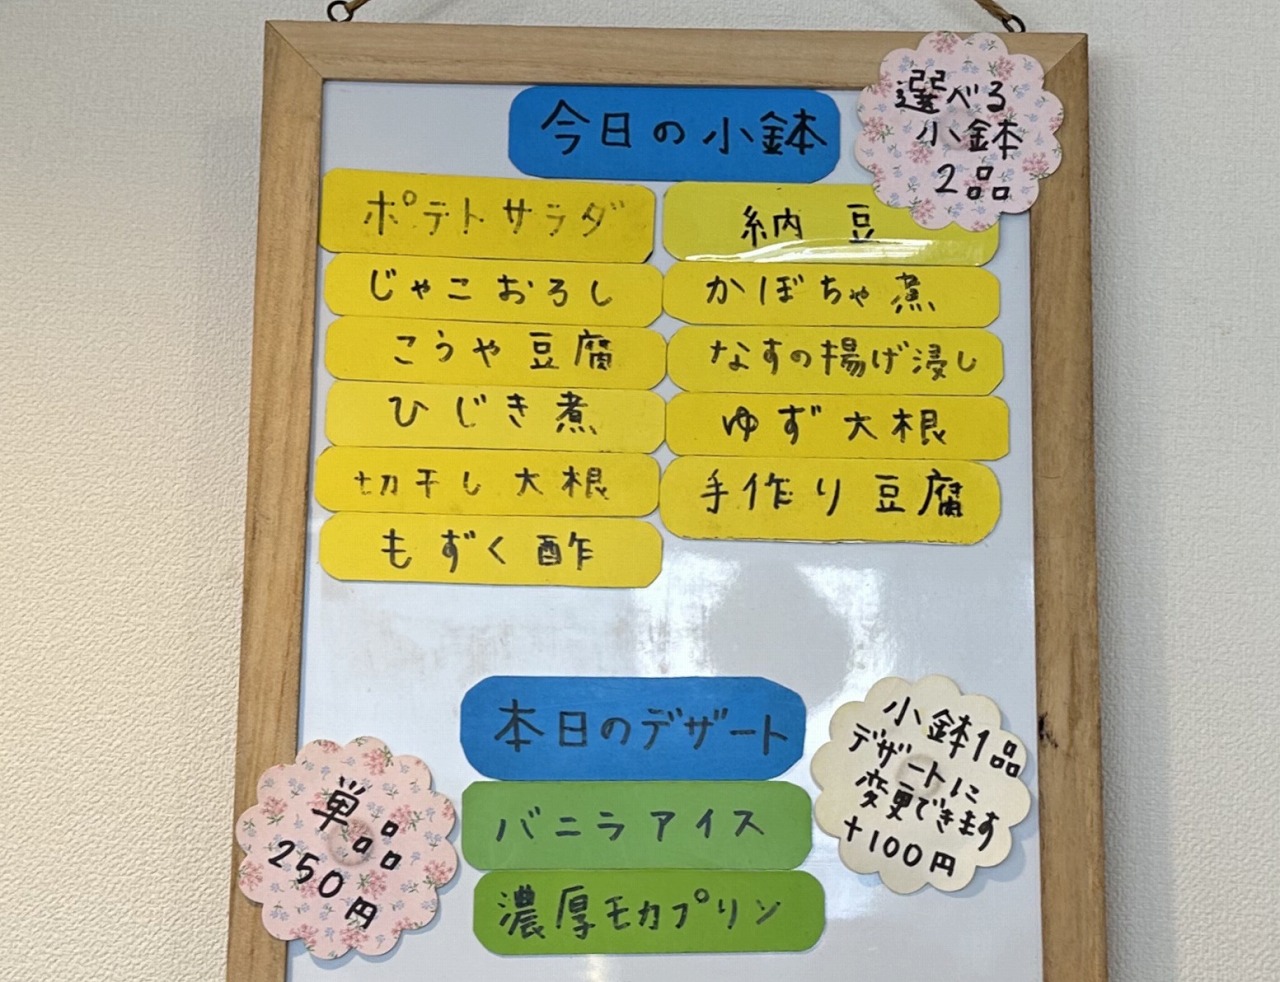 今日の小鉢
選べる
小鉢
2品
ポテトサラダ
納豆
じゃこおろし
かぼちゃ煮
こうや豆腐
なすの揚げ浸し
ひじき煮
ゆず大根
切干し大根
手作り豆腐
もずく酢
本日のデザート
バニラアイス
濃厚モカプリン
小鉢1品
デザートに
変更できます
+100円
単品
250円